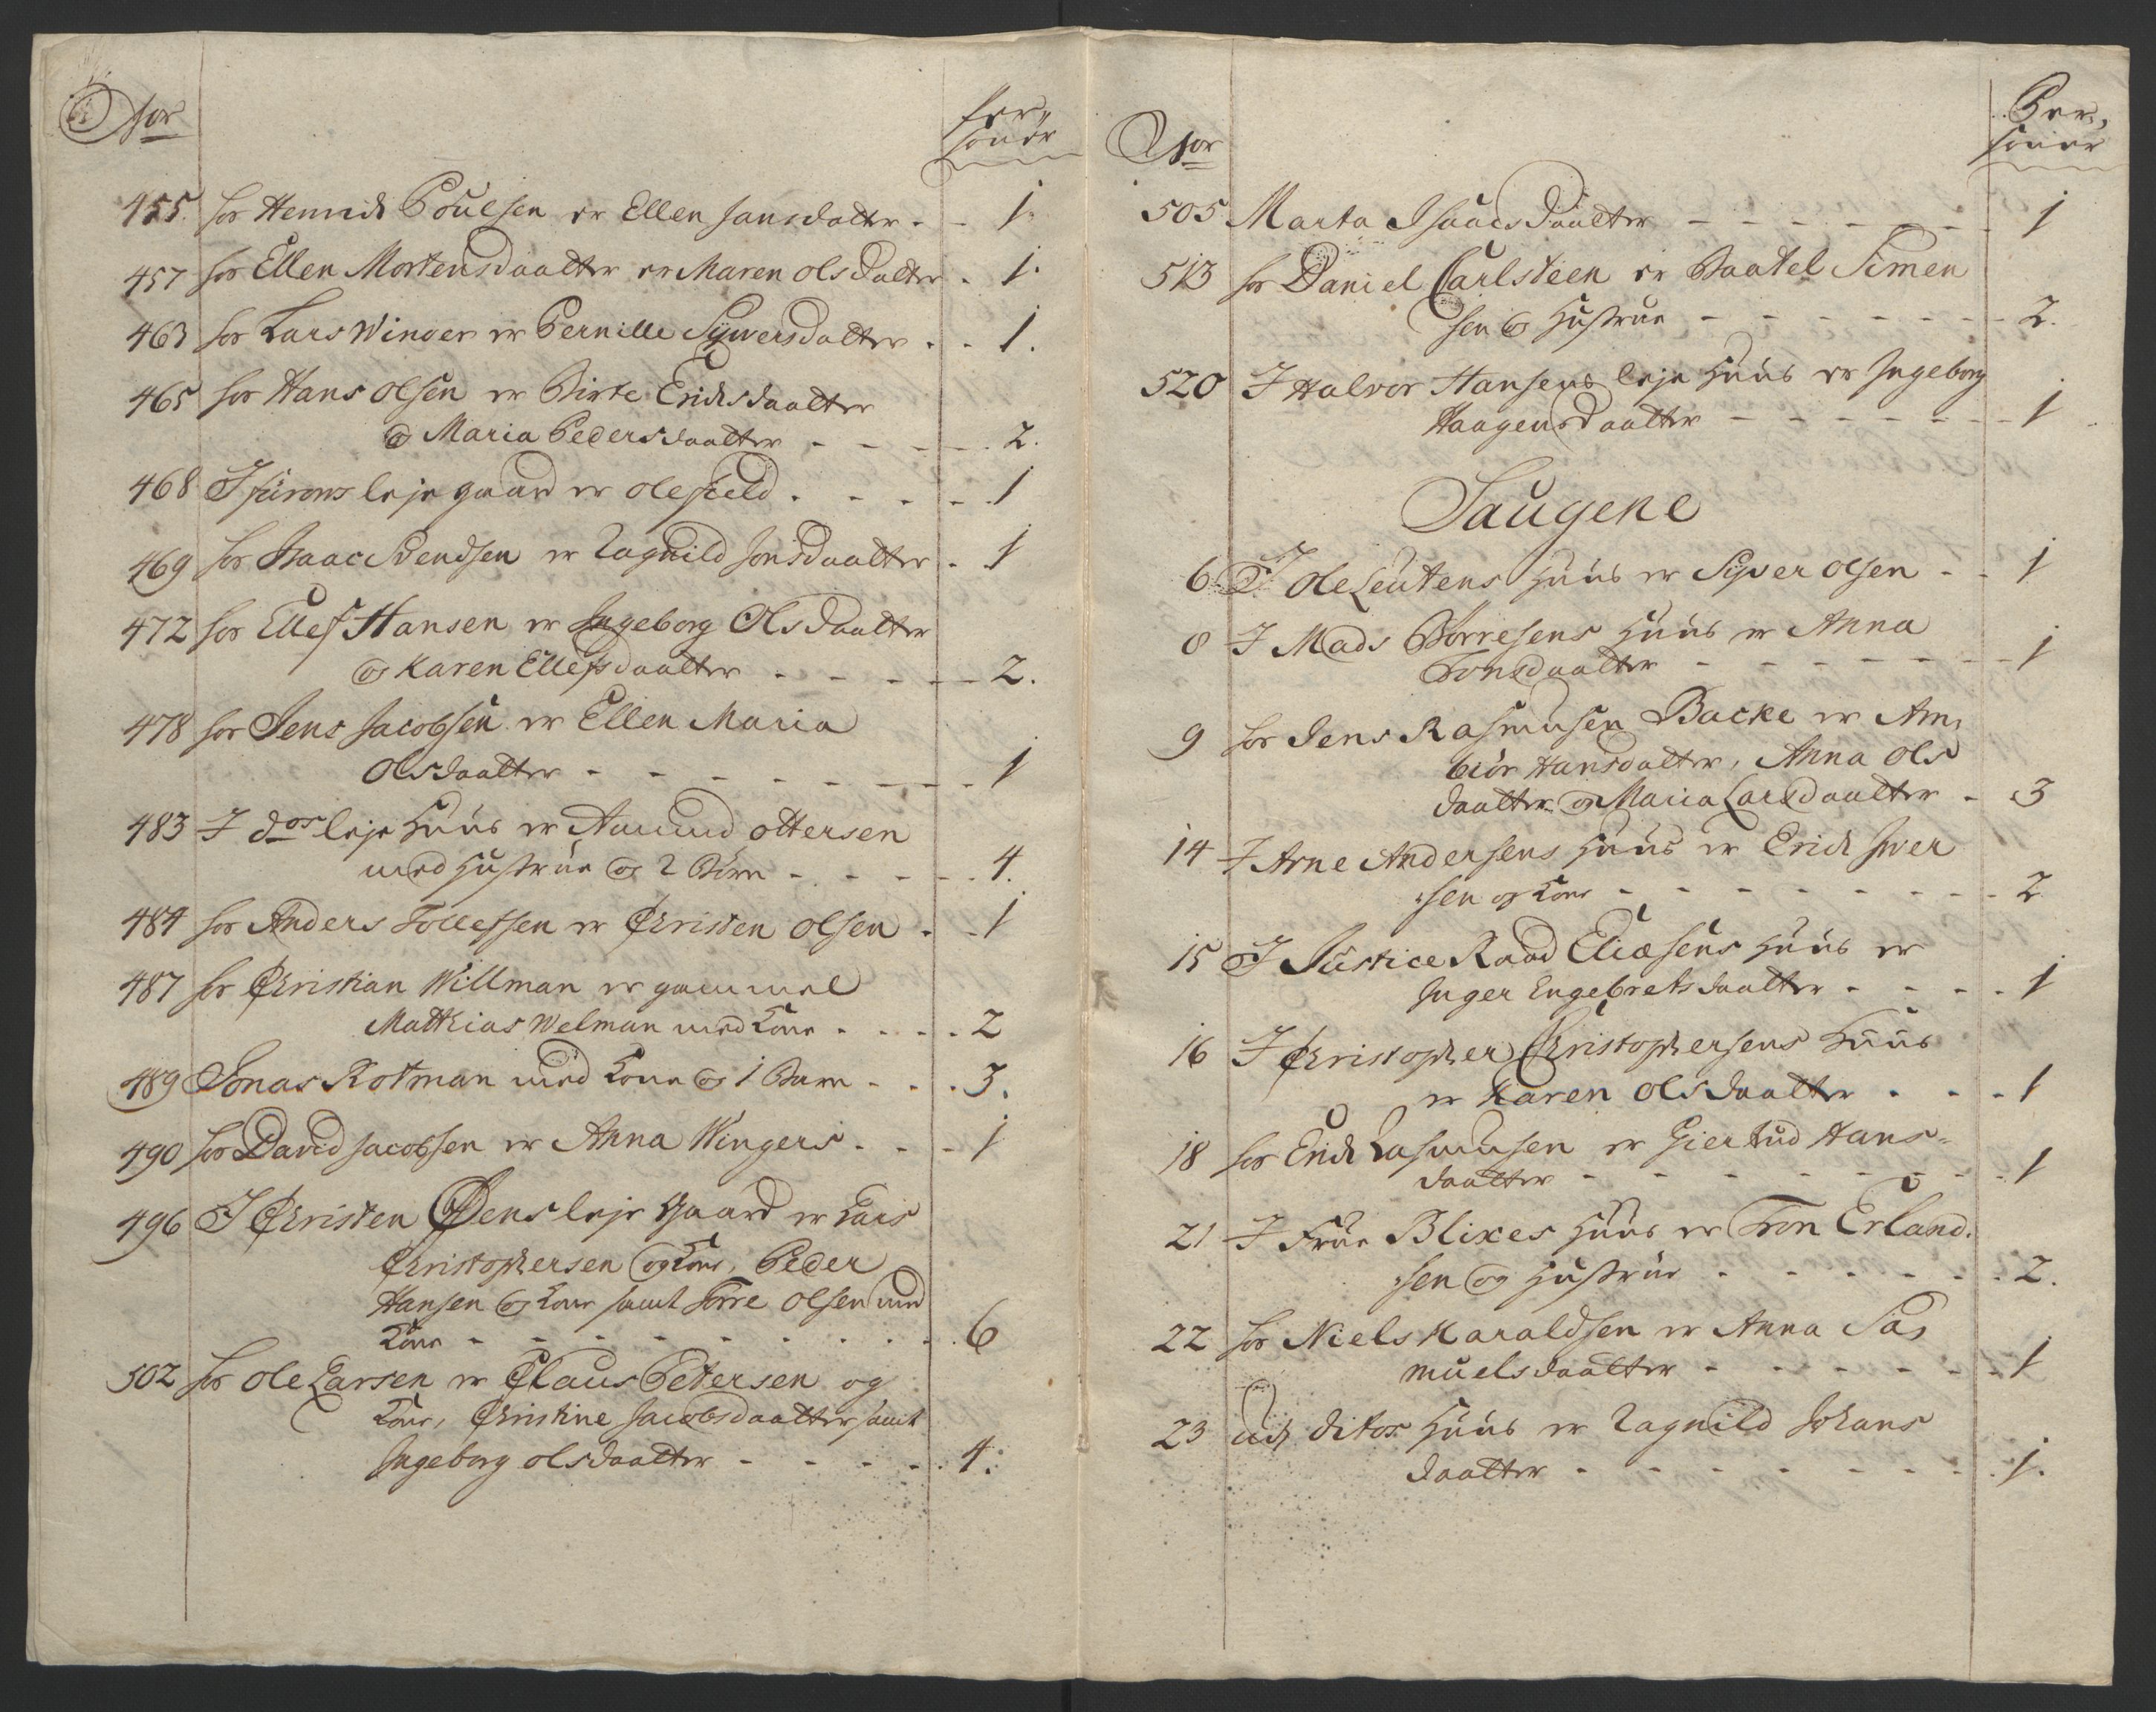 No. Per-
soner
455. hos Henrich Poulsen er Ellen Jansdatter - - 1.
457 hos Ellen Mortensdaatter er Maren Olsdatter - 1.
463 hos Lars Winger er Pernille Syversdatter - - 1.
465 hos Hans Olsen er Birte Erichsdaatter
og Maria Pedersdaatter - - - - 2.
468 I leje gaard er Ole - - - - 1
469 hos Isaac Svendsen er Ragnild Jonsdaatter - 1
472 hos Ellef Hansen er Ingeborg Olsdaatter
og Karen Ellefsdaatter - - - - 2.
478 hos Jens Jacobsen er Ellen Maria
Olsdaatter - - - - - - - 1
483 I dos leje Huus er Amund Ottersen
med Hustrue og 2 Børn - - - - 4.
484 hos Anders Tollefsen er Christen Olsen - - 1
487 hos Christian Willman er gammel
Mathias Welman med Kone - - - - 2
489 Jonas Rotman med Kone og 1 Barn - - - 3.
490 hos David Jacobsen er Anna Wingers - - - 1
496 I Christen Øens leje Gaard er Lars
Christophersen og Kone, Peder
Hansen og Kone samt Torre Olsen med
Kone - - - - - - - - 6
502 hos Ole Larsen er Claus Petersen og
Kone, Christine Jacobsdaatter samt
Ingeborg Olsdaatter - - - - 4.
No. Per-
soner
505 Marta Isaacsdaatter - - - - - - 1
513 hos Daniel Carlsteen er Baatel Simen
sen og Hustrue - - - - - - 2.
520 I Halvor Hansens leje Huus er Ingeborg
Haagensdaatter - - - - - - 1
Saugene
6 I Ole Leutens Huus er Syver Olsen - - 1
8 I Mads Børresens Huus er Anna
Tonsdaatter - - - - - - 1
9 hos Jens Rasmusen Backe er Am-
biør Hansdatter, Anna Ols
daatter og Maria Larsdaatter - 3
14 I Arne Andersens Huus er Erich Iver
sen og Kone - - - - - - - 2
15 I Justice Raad Eliæsens Huus er
Inger Engebretsdaatter - - - - 1
16 I Christopher Christophersens Huus
er Karen Olsdaatter - - - 1
18 hos Erich Rasmusen er Giertud Hans-
daatter - - - - - - - 1
21 I Frue Blixes Huus er Tron Erland-
sen og Hustrue - - - - - - 2.
22 hos Niels Haraldsen er Anna Sa-
muelsdaatter - - - - - - 1
23 udi ditos Huus er Ragnild Johans
daatter - - - - - - - 1.